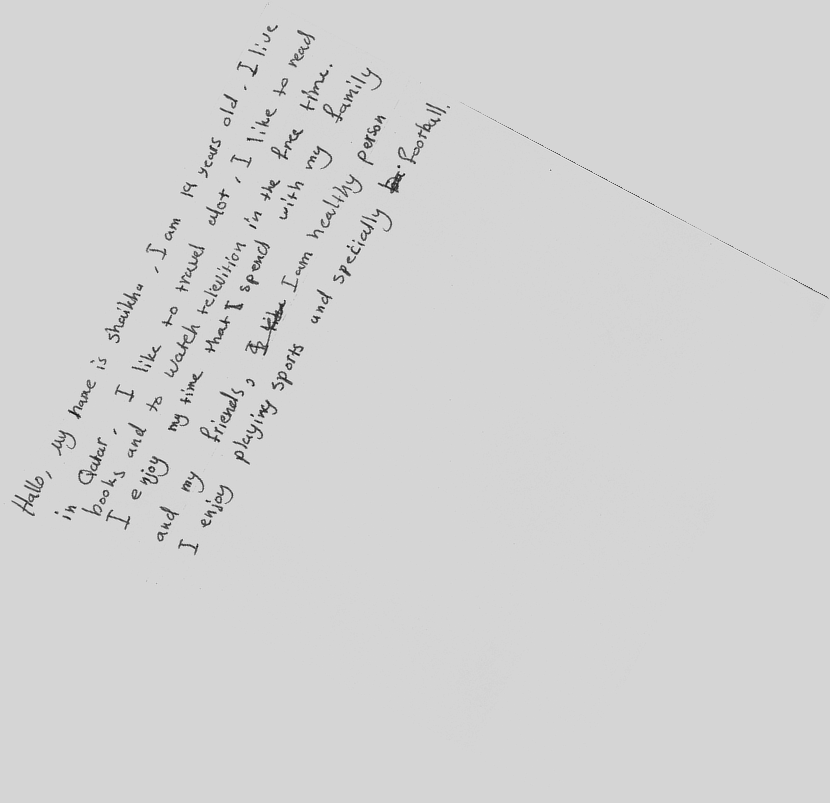 Hallo, My name is shaikha, I am 19 years old. I live
in Qatar. I like to travel alot, I like to read
books and to watch television in the free time.
I enjoy my time that I spend with my family
and my friends, I am healthy person
I enjoy playing sports and specially football.